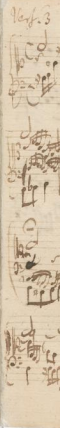 Vers. 3